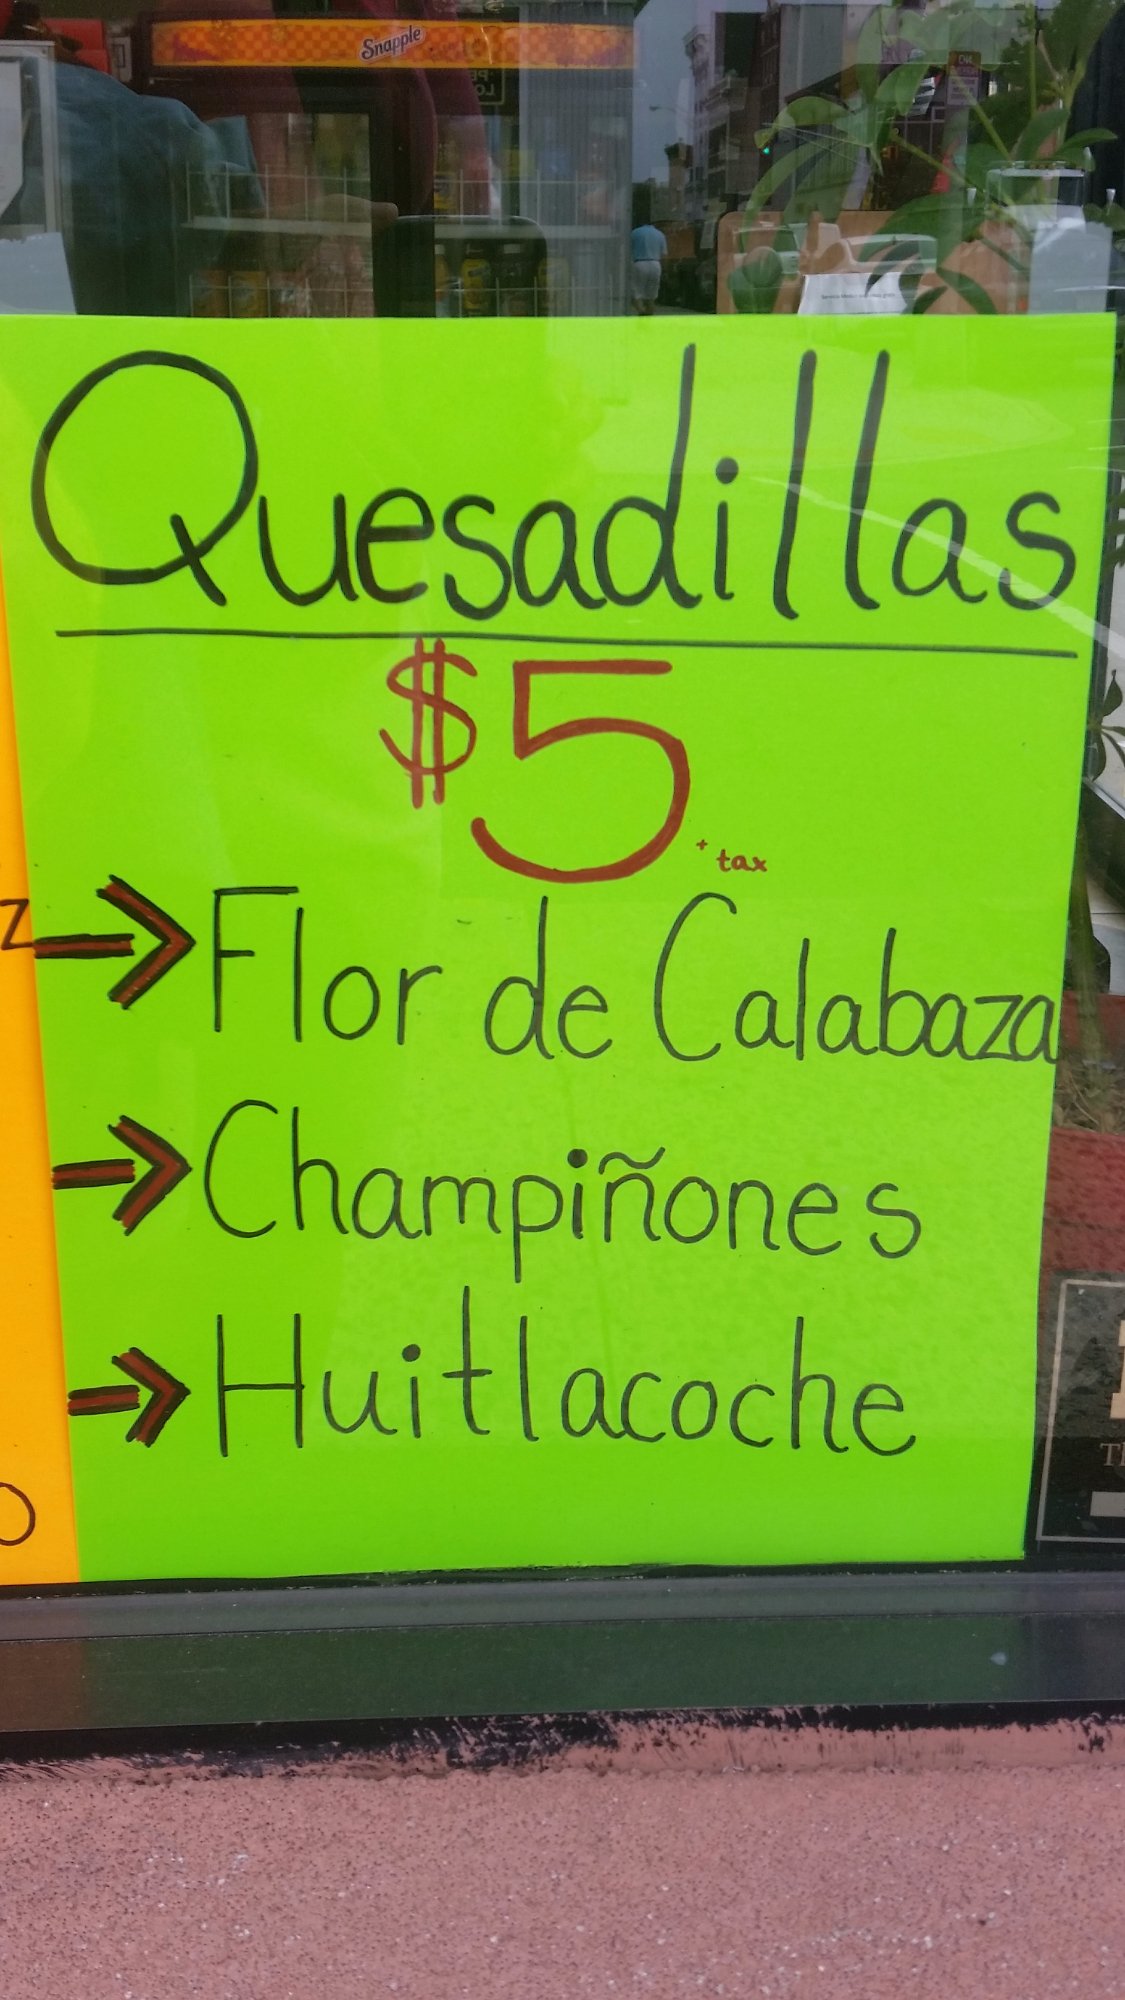 Snapple
Quesadillas
$5 + tax
Flor de Calabaza
Champiñones
Huitlacoche
z
o